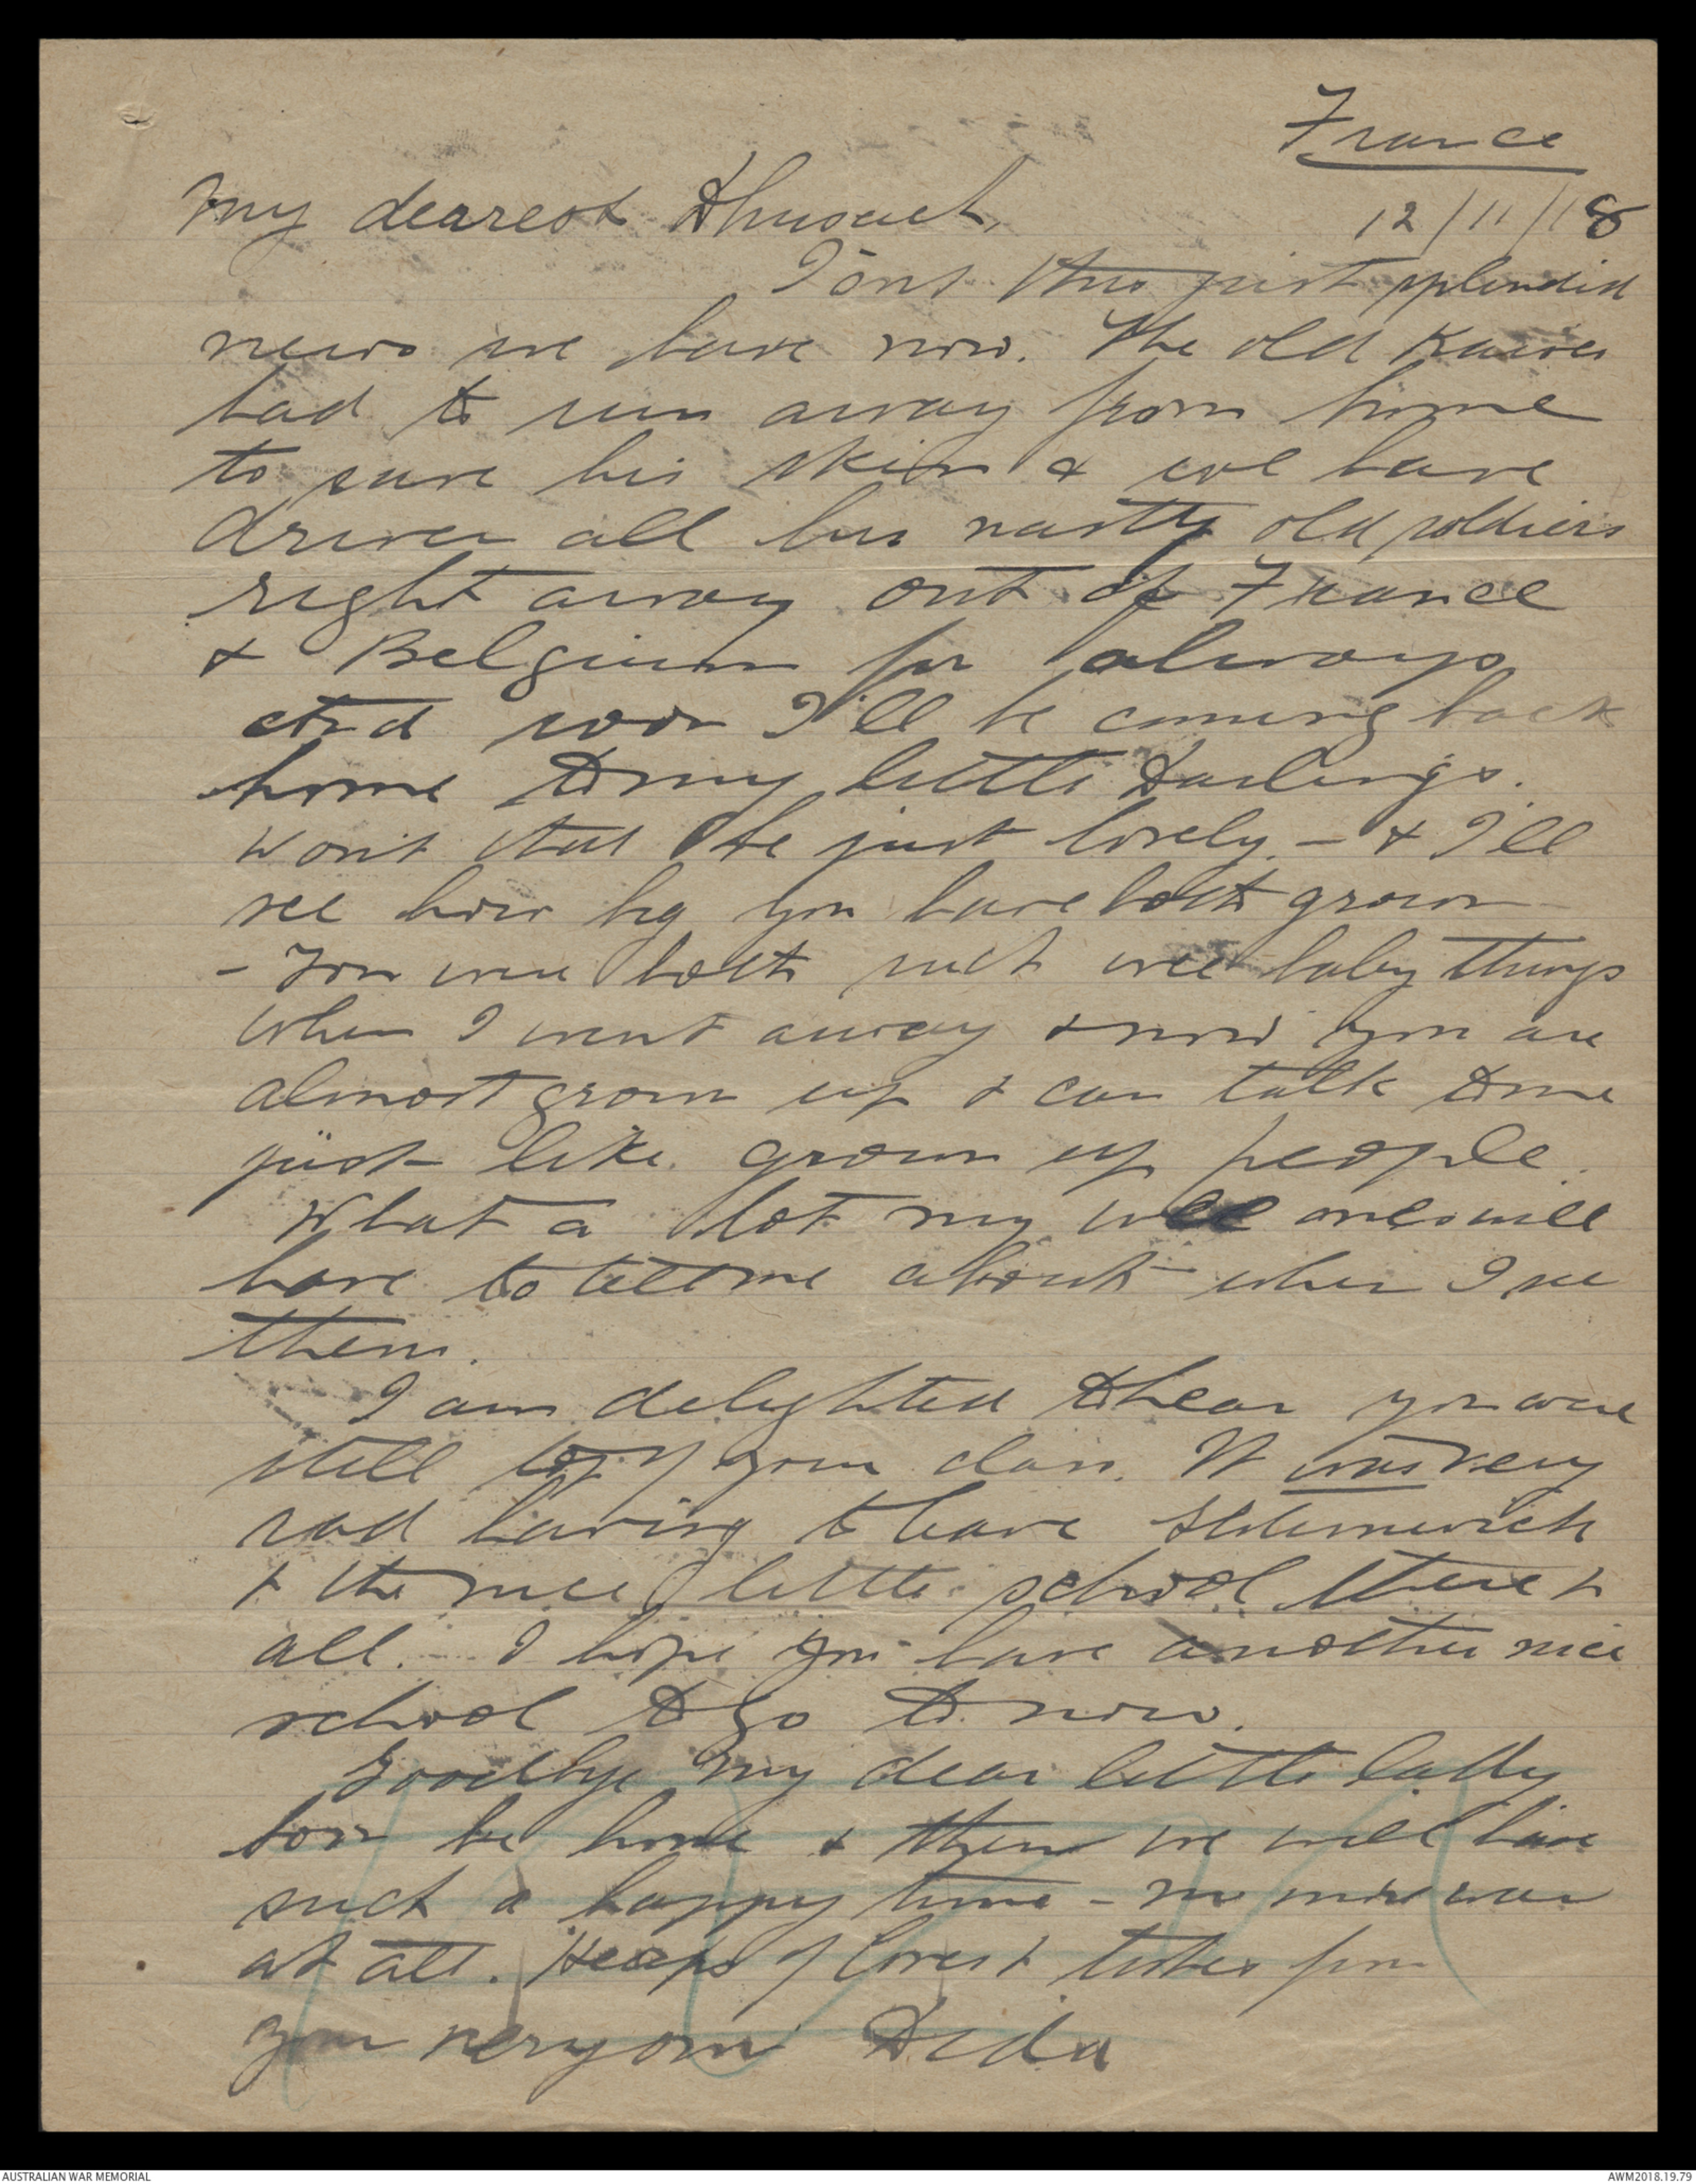 France
12/11/18
My dearest
Isn't this just splendid
news we have now. The old Kaiser
had to run away from home
to save his skin & we have
driven all his nasty old soldiers
right away out of France
& Belgium for always
and soon I'll be coming back
home to my little Darlings.
Won't that be just lovely. - & I'll
see how big you have both grown
- You were both such wee baby things
when I went away & now you are
almost grown up & can talk to me
just like grown up people.
What a lot my wee ones will
have to tell me about when I see
them.
I am delighted to hear you were
still top of your class. It was very
sad having to leave
& the nice little school there &
all. I hope you have another nice
school to go to now.
Goodbye my dear little laddy
soon be home & then we will have
such a happy time - no more war
at all. Heaps of love & from
your very own Dida
AUSTRALIAN WAR MEMORIAL
AWM2018.19.79